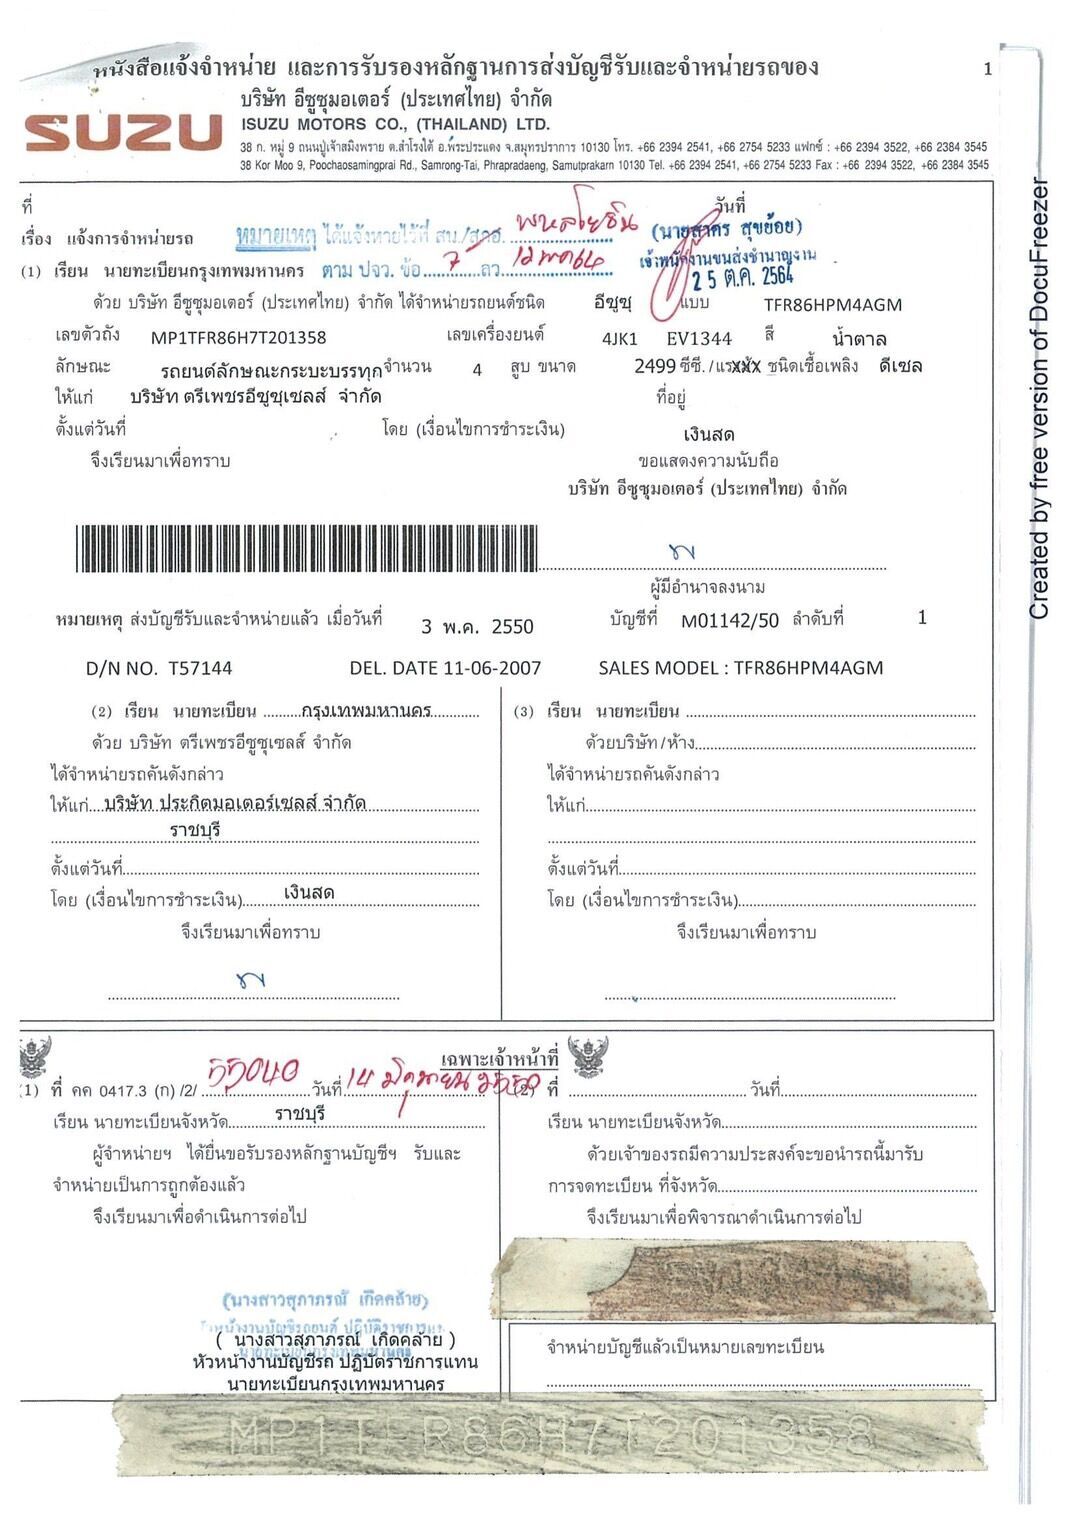 หนังสือแจ้งจำหน่าย และการรับรองหลักฐานการส่งบัญชีรับและจำหน่ายรถของ 1
SUZU
บริษัท อีซูซุมอเตอร์ (ประเทศไทย) จำกัด
ISUZU MOTORS CO., (THAILAND) LTD.
38 ก. หมู่ 9 ถนนปู่เจ้าสมิงพราย ต.สำโรงใต้ อ.พระประแดง จ.สมุทรปราการ 10130 โทร. +66 2394 2541, +66 2754 5233 แฟกซ์ : +66 2394 3522, +66 2384 3545
38 Kor Moo 9, Poochaosamingprai Rd., Samrong-Tai, Phrapradaeng, Samutprakarn 10130 Tel. +66 2394 2541, +66 2754 5233 Fax : +66 2394 3522, +66 2384 3545
ที่ วันที่
เรื่อง แจ้งการจำหน่ายรถ หมายเหตุ ได้แจ้งหายไว้ที่ สน./สภอ. พหลโยธิน (นายสาคร สุขย้อย)
(1) เรียน นายทะเบียนกรุงเทพมหานคร ตาม ปจว. ข้อ 7 ลว. 12 พค 64 เจ้าพนักงานขนส่งชำนาญงาน
25 ต.ค. 2564
ด้วย บริษัท อีซูซุมอเตอร์ (ประเทศไทย) จำกัด ได้จำหน่ายรถยนต์ชนิด อีซูซุ แบบ TFR86HPM4AGM
เลขตัวถัง MP1TFR86H7T201358 เลขเครื่องยนต์ 4JK1 EV1344 สี น้ำตาล
ลักษณะ รถยนต์ลักษณะกระบะบรรทุก จำนวน 4 สูบ ขนาด 2499 ซีซี./แรงม้า XXX ชนิดเชื้อเพลิง ดีเซล
ให้แก่ บริษัท ตรีเพชรอีซูซุเซลส์ จำกัด ที่อยู่
ตั้งแต่วันที่ โดย (เงื่อนไขการชำระเงิน) เงินสด
จึงเรียนมาเพื่อทราบ ขอแสดงความนับถือ
บริษัท อีซูซุมอเตอร์ (ประเทศไทย) จำกัด
ผู้มีอำนาจลงนาม
หมายเหตุ ส่งบัญชีรับและจำหน่ายแล้ว เมื่อวันที่ 3 พ.ค. 2550 บัญชีที่ M01142/50 ลำดับที่ 1
D/N NO. T57144 DEL. DATE 11-06-2007 SALES MODEL : TFR86HPM4AGM
(2) เรียน นายทะเบียน กรุงเทพมหานคร
ด้วย บริษัท ตรีเพชรอีซูซุเซลส์ จำกัด
ได้จำหน่ายรถคันดังกล่าว
ให้แก่ บริษัท ประกิตมอเตอร์เซลส์ จำกัด
ราชบุรี
ตั้งแต่วันที่
โดย (เงื่อนไขการชำระเงิน) เงินสด
จึงเรียนมาเพื่อทราบ
(3) เรียน นายทะเบียน
ด้วยบริษัท/ห้าง
ได้จำหน่ายรถคันดังกล่าว
ให้แก่
ตั้งแต่วันที่
โดย (เงื่อนไขการชำระเงิน)
จึงเรียนมาเพื่อทราบ
เฉพาะเจ้าหน้าที่
(1) ที่ คค 0417.3 (ก) /2/ 55040 วันที่ 14 มิถุนายน 2550
เรียน นายทะเบียนจังหวัด ราชบุรี
ผู้จำหน่ายฯ ได้ยื่นขอรับรองหลักฐานบัญชีฯ รับและ
จำหน่ายเป็นการถูกต้องแล้ว
จึงเรียนมาเพื่อดำเนินการต่อไป
(นางสาวสุภาภรณ์ เกิดคล้าย)
( นางสาวสุภาภรณ์ เกิดคล่าย )
หัวหน้างานบัญชีรถ ปฏิบัติราชการแทน
นายทะเบียนกรุงเทพมหานคร
(2) ที่ วันที่
เรียน นายทะเบียนจังหวัด
ด้วยเจ้าของรถมีความประสงค์จะขอนำรถนี้มารับ
การจดทะเบียน ที่จังหวัด
จึงเรียนมาเพื่อพิจารณาดำเนินการต่อไป
จำหน่ายบัญชีแล้วเป็นหมายเลขทะเบียน
MP1TFR86H7T201358
Created by free version of DocuFreezer